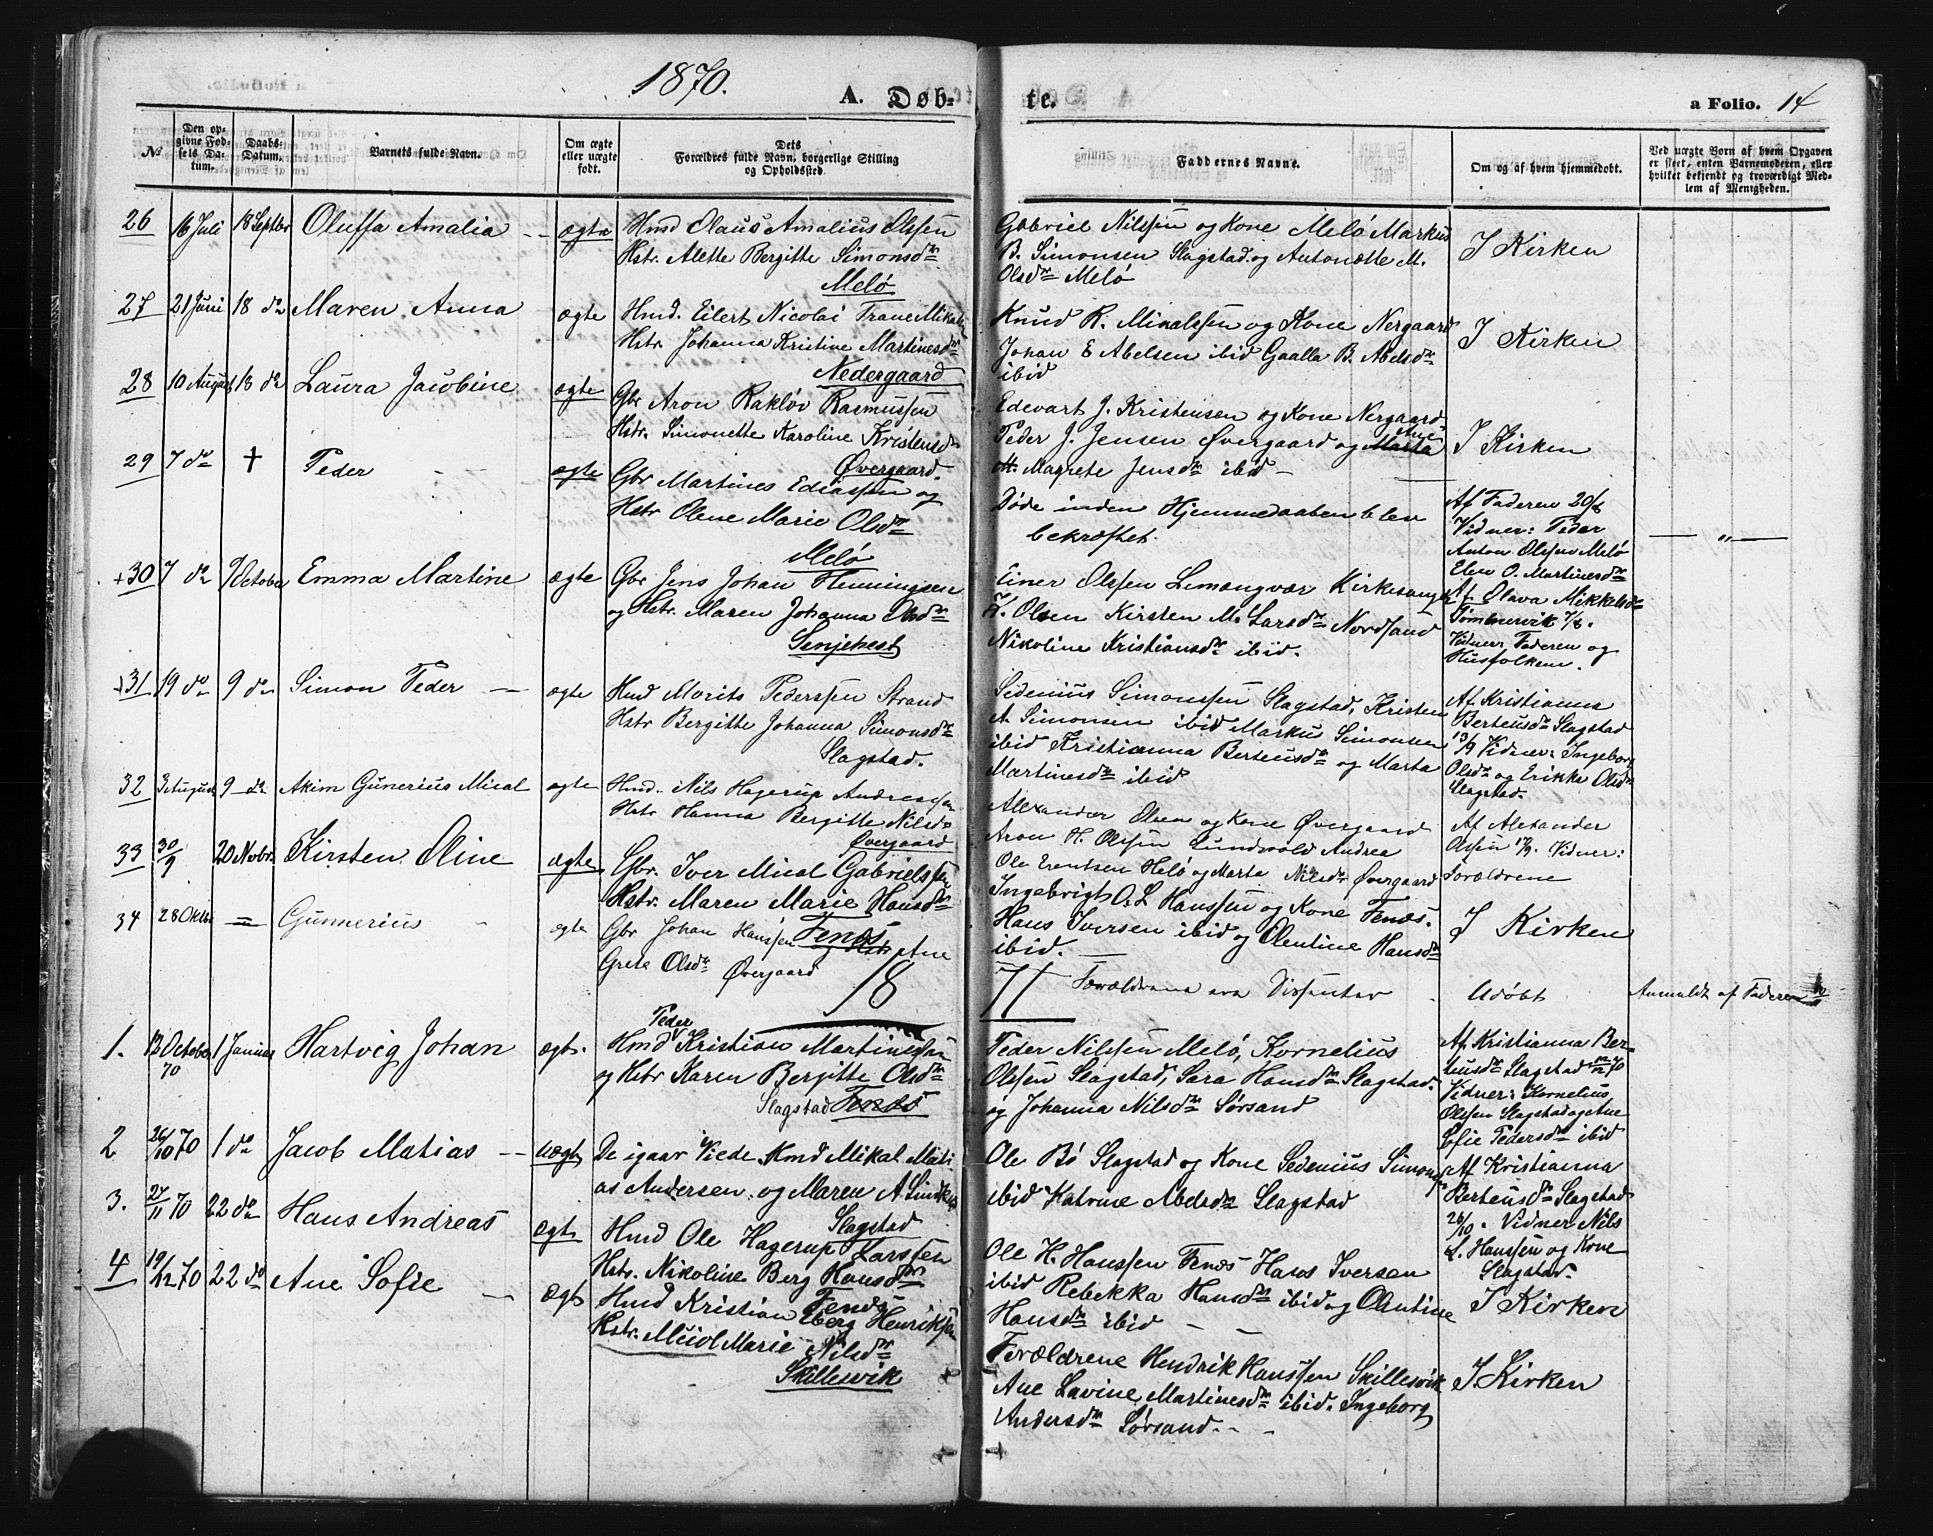 1870.
A. Døb-
te.
a Folio. 14
No
Den op-
givne Fød-
sels Da-
tum.
Daabs-
Datum.
Barnets fulde Navn.
Om ægte
eller uægte
født.
Dets
Forældres fulde Navn, borgerlige Stilling
og Opholdssted.
Faddernes Navne.
Om og af hvem hjemmedøbt.
Ved uægte Børn af hvem Opgaven
er skeet, enten Barnemoderen, eller
hvilket bekjendt og troværdigt Med-
lem af Menigheden.
26 16 Juli 18 Septbr Oluffa Amalia - - ægte
Hmd Olaus Amalius Olssen
Hstr. Alette Bergitte Simonsdtr
Melø
Gabriel Nilssen og Kone Melø Markus
B. Simonsen Slagstad og Antonætte M.
Olsdtr Melø
I Kirken
27 21 Juni 18 do Maren Anna ægte
Hmd. Eilert Nicolai Trane
Hstr Johanna Kristine Martinesdtr
Nedergaard
Knud R. Micalssen og Kone Nergaard
Johan E Abelsen ibid Gaalla B. Abelsdtr
ibid
I Kirken
28 10 August 18 do Laura Jacobine ægte
Gbr Aron Rakløv Rasmussen
Hstr. Simonette Karoline Kristensdtr
Øvergaard.
Edevart J. Kristensen og Kone Nergaard
Peder J. Jensen Øvergaard og Marta
M. Magrete Jensdtr ibid -
I Kirken
29 7 do † Peder - ægte
Gbr Martines Ediassen og
Hstr Olene Marie Olsdtr
Melø
Døde inden Hjemmedaaben blev
bekræftet.
Af Faderen 20/8
Vidner: Peder
Anton Olssen Melø
Elen O. Martinesdtr
— „ —
+30 7 do 9 October Emma Martine ægte
Gbr Jens Johan Henningsen
og Hstr. Maren Johanna Olsdtr
Sinjehest
Einer Olssen Kirkesanger
Olsen Kirsten M. Larsdtr Nordsand
Nikoline Kristiansdtr ibid.
Af Olava Mikkelsdtr
Tømmervik 7/8.
Vidner: Faderen og
Husfolkene.
+31 19 do 9 do Simon Peder — ægte
Hmd Morits Pederssen Strand
Hstr Bergitte Johanna Simonsdtr
Slagstad.
Sidenius Simonssen Slagstad, Kristen
A. Simonsen ibid Markus Simonsen
ibid Kristianna Berteusdtr og Marta
Martinesdtr ibid
Af Kristianna
Berteusdtr Slagstad
13/9 Vidner: Ingeborg
Olsdtr og Erikke Olsdtr
Slagstad.
32 3 August 9 do Akim Gunerius Mical ægte
Hmd. Nils Hagerup Andreassen
Hstr Hanna Bergitte Nilsdtr
Øvergaard
Alexander Olsen og Kone Øvergaard
Aron H. Olssen Lundvold Andrea
Ole Erentsen Melø og Marta Nilsdtr Øvergaard
Af Alexander
Olssen 17/9. Vidner:
Forældrene
33 30/9 20 Novbr. Kirsten Oline ægte
Gbr. Iver Mical Gabrielssen
Hstr. Maren Marie Hansdtr
Fenes
Ingebrigt O. L Hanssen og Kone Fenes.
Hans Iversen ibid og Olentine Hansdtr
ibid. —
I Kirken
34 28 Oktbr = Gunnerius - ægte
Gbr Johan Hanssen og Hstr Ane
Grete Olsdtr Øvergaard
Forældrene ere Dissenter - Udøbt Anmeldt af Faderen
1871
1. 13 October 70 1 Januar Hartvig Johan ægt.
Peder
Hmd Kristian Martinussen
og Hstr Karen Bergitte Olsdtr
Slagstad Fenes
Peder Nilssen Melø, Kornelius
Olssen Slagstad, Sara Hansdtr Slagstad.
og Johanna Nilsdtr Sørsand
Af Kristianna Ber-
teusdtr Slagstad 70
Vidner: Kornelius
Olssen Slagstad og Ane
Sofie Pedersdtr ibid
2 26/10 70 1 do Jacob Matias — uægt
De igaar Viede Hmd Mikal Mati-
as Andersen og Maren A
Slagstad
Ole Bø Slagstad og Kone Sedenius Simonsen
ibid Katrine Abelsdtr Slagstad
Af Kristianna
Berteusdtr Slagstad
26/10. Vidner Nils
L. Hanssen og Kone
Slagstad.
3. 27/11 70 22 do Hans Andreas ægt
Hmd Ole Hagerup Larssen
Hstr. Nikoline Berg Hansdtr
Fenes
Ole H. Hanssen Fenes Hans Iversen
ibid Rebekka Hansdtr ibid og Olentine
Hansdtr ibid - -
I Kirken
4 19/12 70 22 do Ane Sofie — ægt
Hmd Kristian Eberg Henriksen
Hstr. Marie Nilsdtr
Skillesvik
Forældrene Hendrik Hanssen Skillesvik
Ane Lavine Martinesdtr ibid. Ingeborg
Andersdtr Sørsand - -
I Kirken